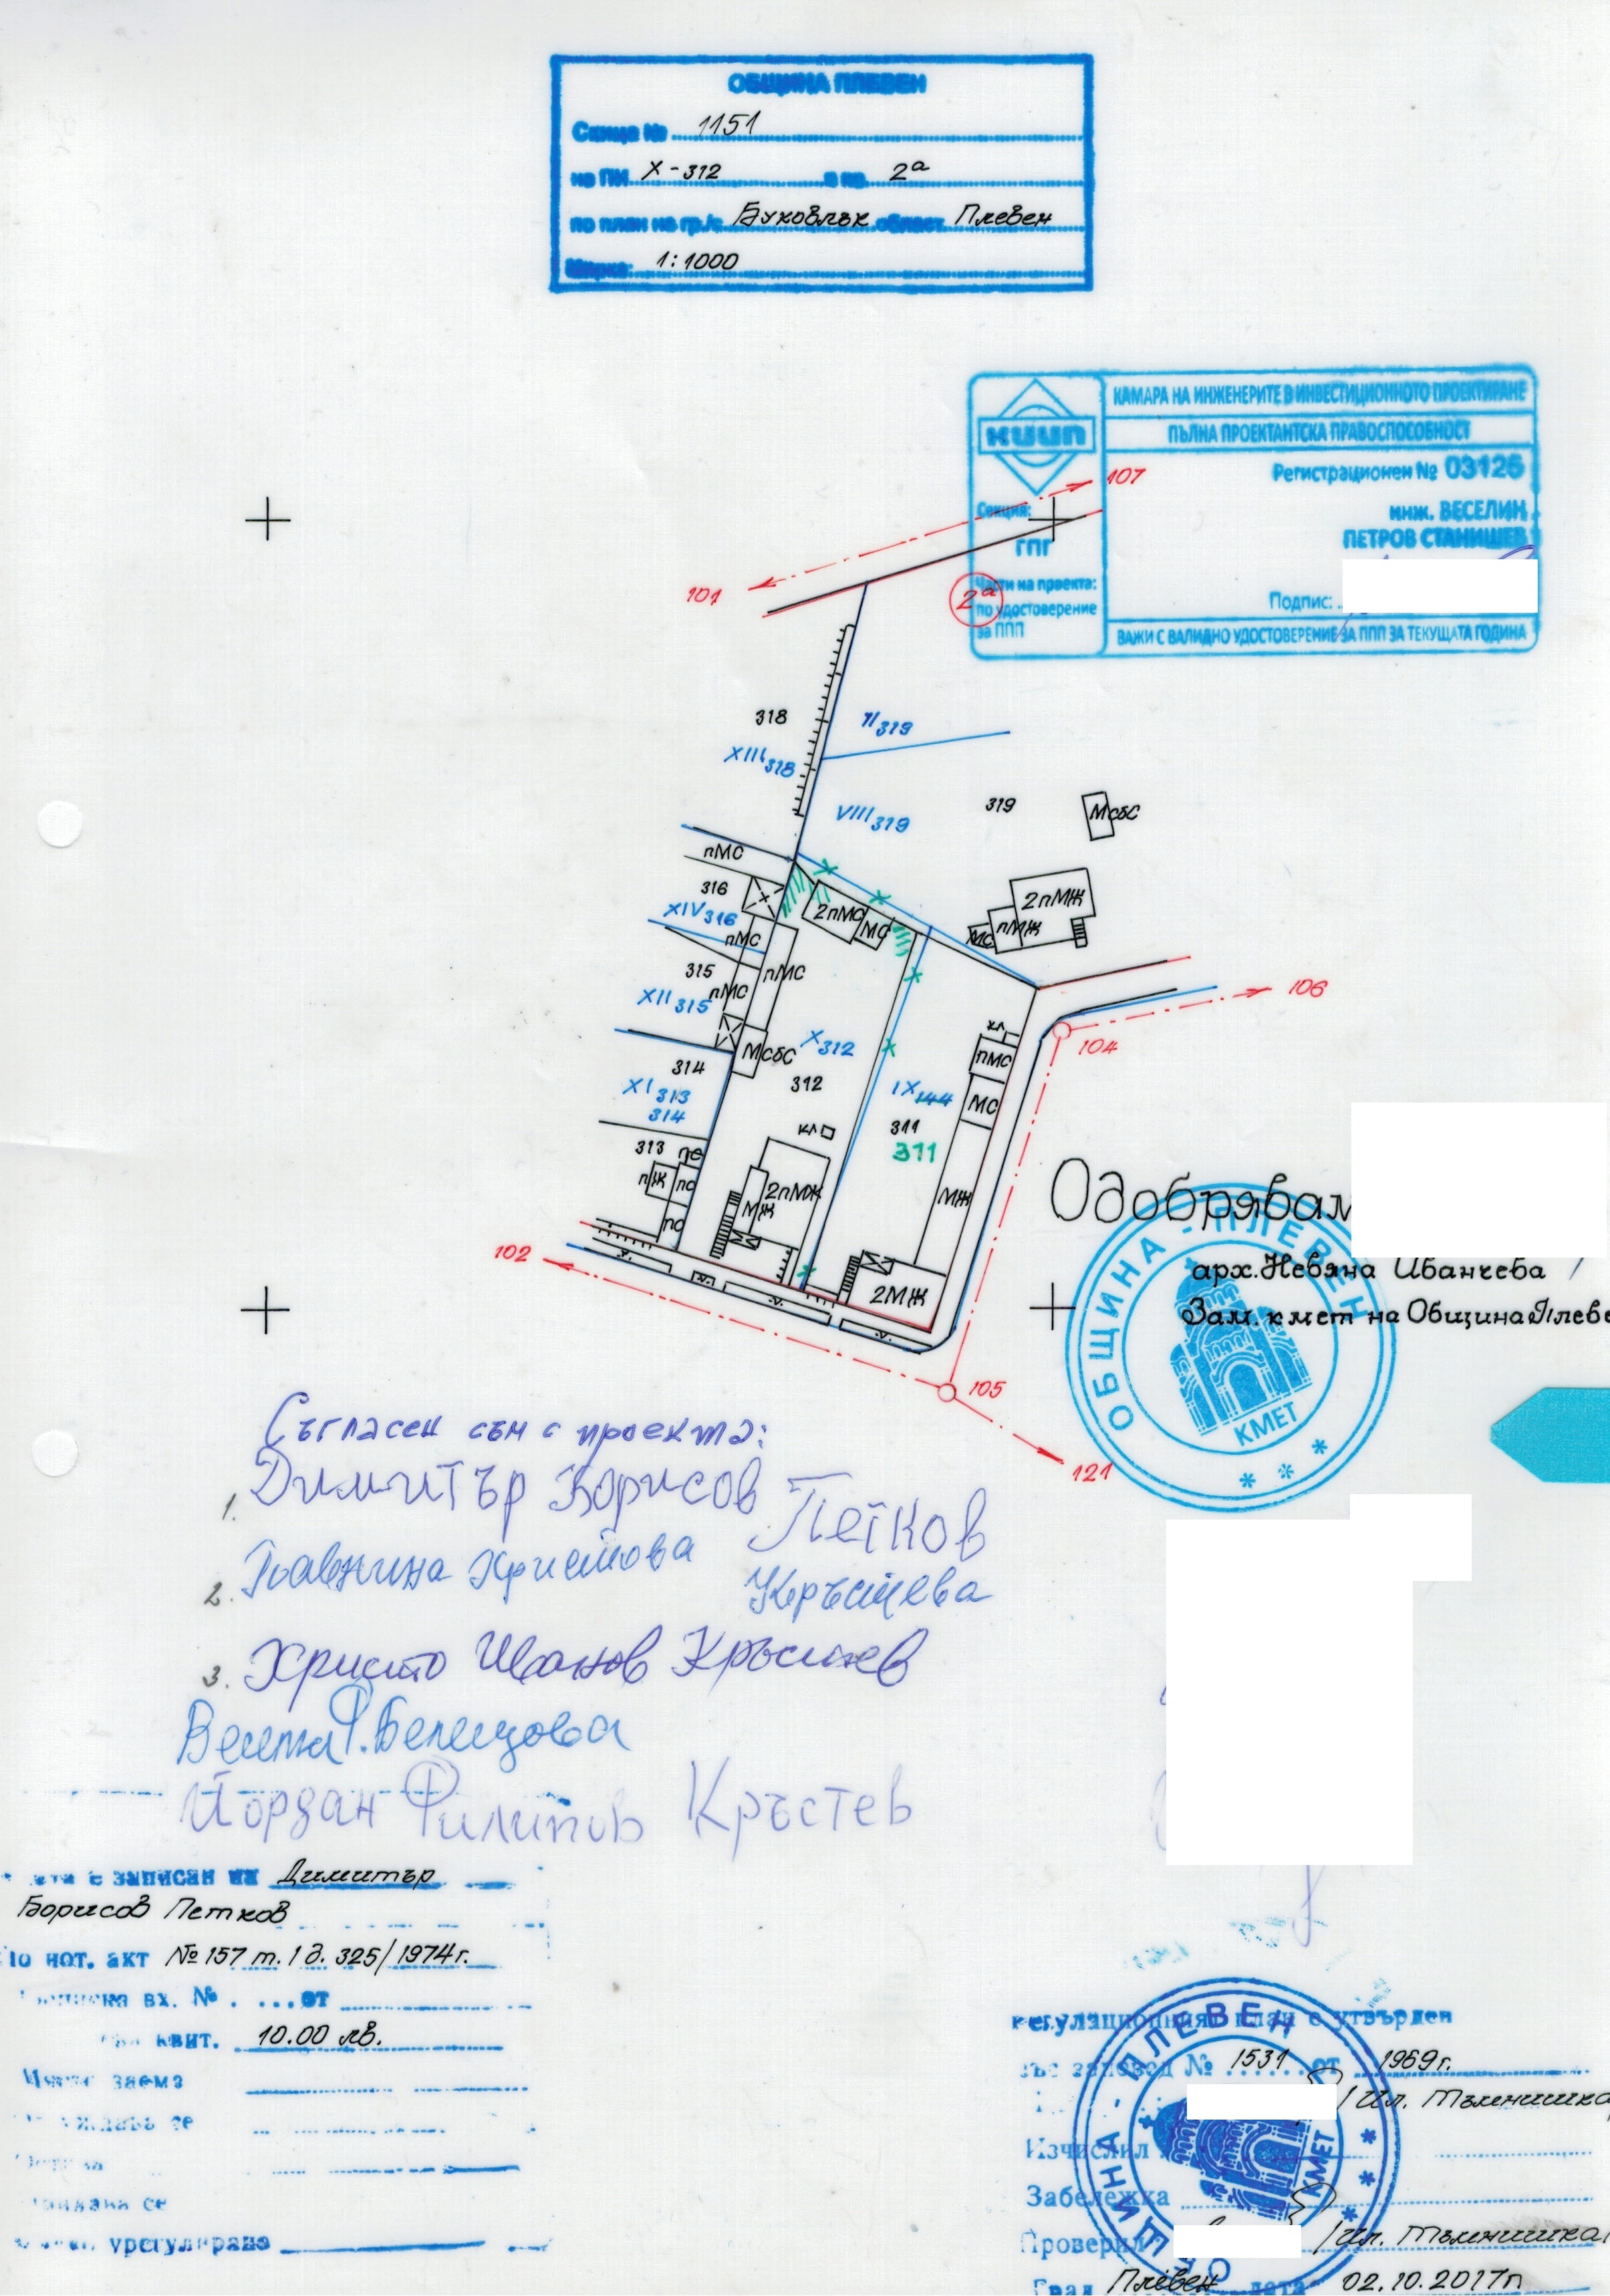 ОБЩИНА ПЛЕВЕН
Скица № 1151
на ПИ X-312 в кв. 2а
по план на гр./с. Буковлък област Плевен
Мярка: 1:1000
КАМАРА НА ИНЖЕНЕРИТЕ В ИНВЕСТИЦИОННОТО ПРОЕКТИРАНЕ
КИИП
ПЪЛНА ПРОЕКТАНТСКА ПРАВОСПОСОБНОСТ
Регистрационен № 03125
107
Секция:
инж. ВЕСЕЛИН
ГПГ
ПЕТРОВ СТАНИШЕВ
Части на проекта:
101
2а
по удостоверение
Подпис:
за ППП
ВАЖИ С ВАЛИДНО УДОСТОВЕРЕНИЕ ЗА ППП ЗА ТЕКУЩАТА ГОДИНА
318
VII 319
XIII 318
VIII 319
319
МсбС
пМС
316
2пМЖ
XIV 316
2пМС
МС
пМЖ
МС
пМС
315
пМС
XII 315
пМС
106
МсбС
X 312
кл
104
314
312
пМС
XI 313
314
IX 144
МС
кл
311
311
313
пс
пЖ
пс
2пМЖ
МЖ
МЖ
пс
102
2МЖ
105
121
Одобрявам
арх. Невяна Иванчева
Зам. кмет на Община Плеве
ОБЩИНА - ПЛЕВЕН
КМЕТ
Съгласен съм с проекта:
1. Димитър Борисов Петков
2. Христова Кръстева
3. Христо Иванов Кръстев
Йордан Филипов Кръстев
е записан на Димитър
Борисов Петков
По нот. акт № 157 т. 1 д. 325/1974г.
вх. № от
квит. 10.00 лв.
заема
се
се
урегулирано
Регулационният план е утвърден
със заповед № 1531 от 1969г.
/Ил. Тъмнишка
Изчислил
Забележка
Проверил /Ил. Тъмнишка/
Град Плевен дата 02.10.2017г
ОБЩИНА - ПЛЕВЕН
КМЕТ